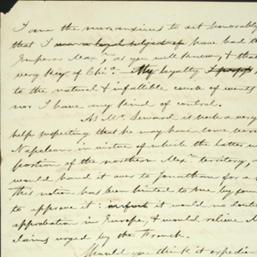 I am the more anxious to act honorably
that I was a loyal subject of have had the
Emperor Max., as you well know, & that
very Rey of Chi. My loyalty I
to the natural & infallible course of events
nor I have any kind of control.
As Mr. Seward is such a very
help suspecting that he may have some
Napoleon in virtue of which the latter
portion of the northern Mex. territory,
would hand it over to Jonathan for a
this nation has been hinted to me by
to approve it: it would no
approbation in Europe, & would relieve
urged by the French.
Should you think it expedient